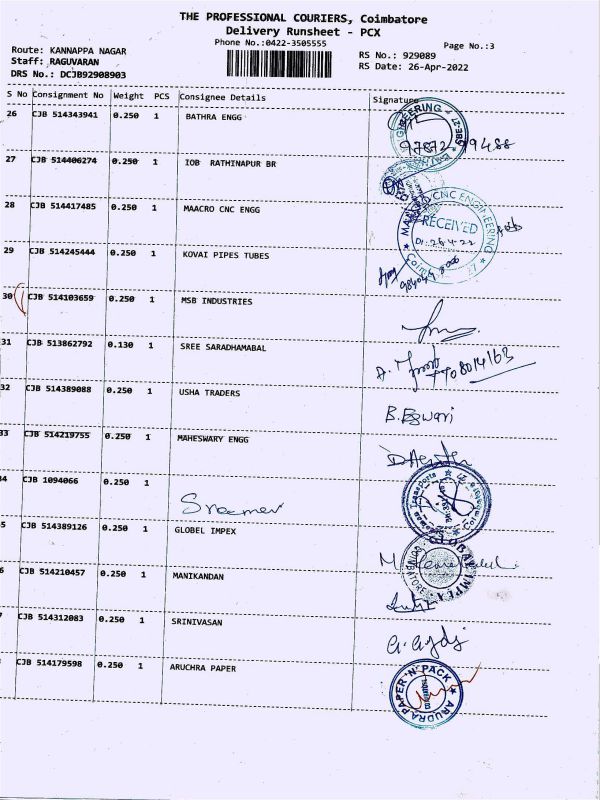 THE PROFESSIONAL COURIERS, Coimbatore
Delivery Runsheet - PCX
Phone No.:0422-3505555
Page No.:3
Route: KANNAPPA NAGAR
Staff: RAGUVARAN
DRS No.: DCJB92908903
RS No.: 929089
RS Date: 26-Apr-2022
S No Consignment No Weight PCS Consignee Details Signature
26 CJB 514343941 0.250 1 BATHRA ENGG
27 CJB 514406274 0.250 1 IOB RATHINAPUR BR
28 CJB 514417485 0.250 1 MAACRO CNC ENGG
RECEIVED
29 CJB 514245444 0.250 1 KOVAI PIPES TUBES
30 CJB 514103659 0.250 1 MSB INDUSTRIES
31 CJB 513862792 0.130 1 SREE SARADHAMABAL
7708014163
32 CJB 514389088 0.250 1 USHA TRADERS
B. Eswari
33 CJB 514219755 0.250 1 MAHESWARY ENGG
34 CJB 1094066 0.250 1
5 CJB 514389126 0.250 1 GLOBEL IMPEX
GLOBAL IMPEX
6 CJB 514210457 0.250 1 MANIKANDAN
7 CJB 514312083 0.250 1 SRINIVASAN
CJB 514179598 0.250 1 ARUCHRA PAPER
ARUDRA PAPER 'N' PACK